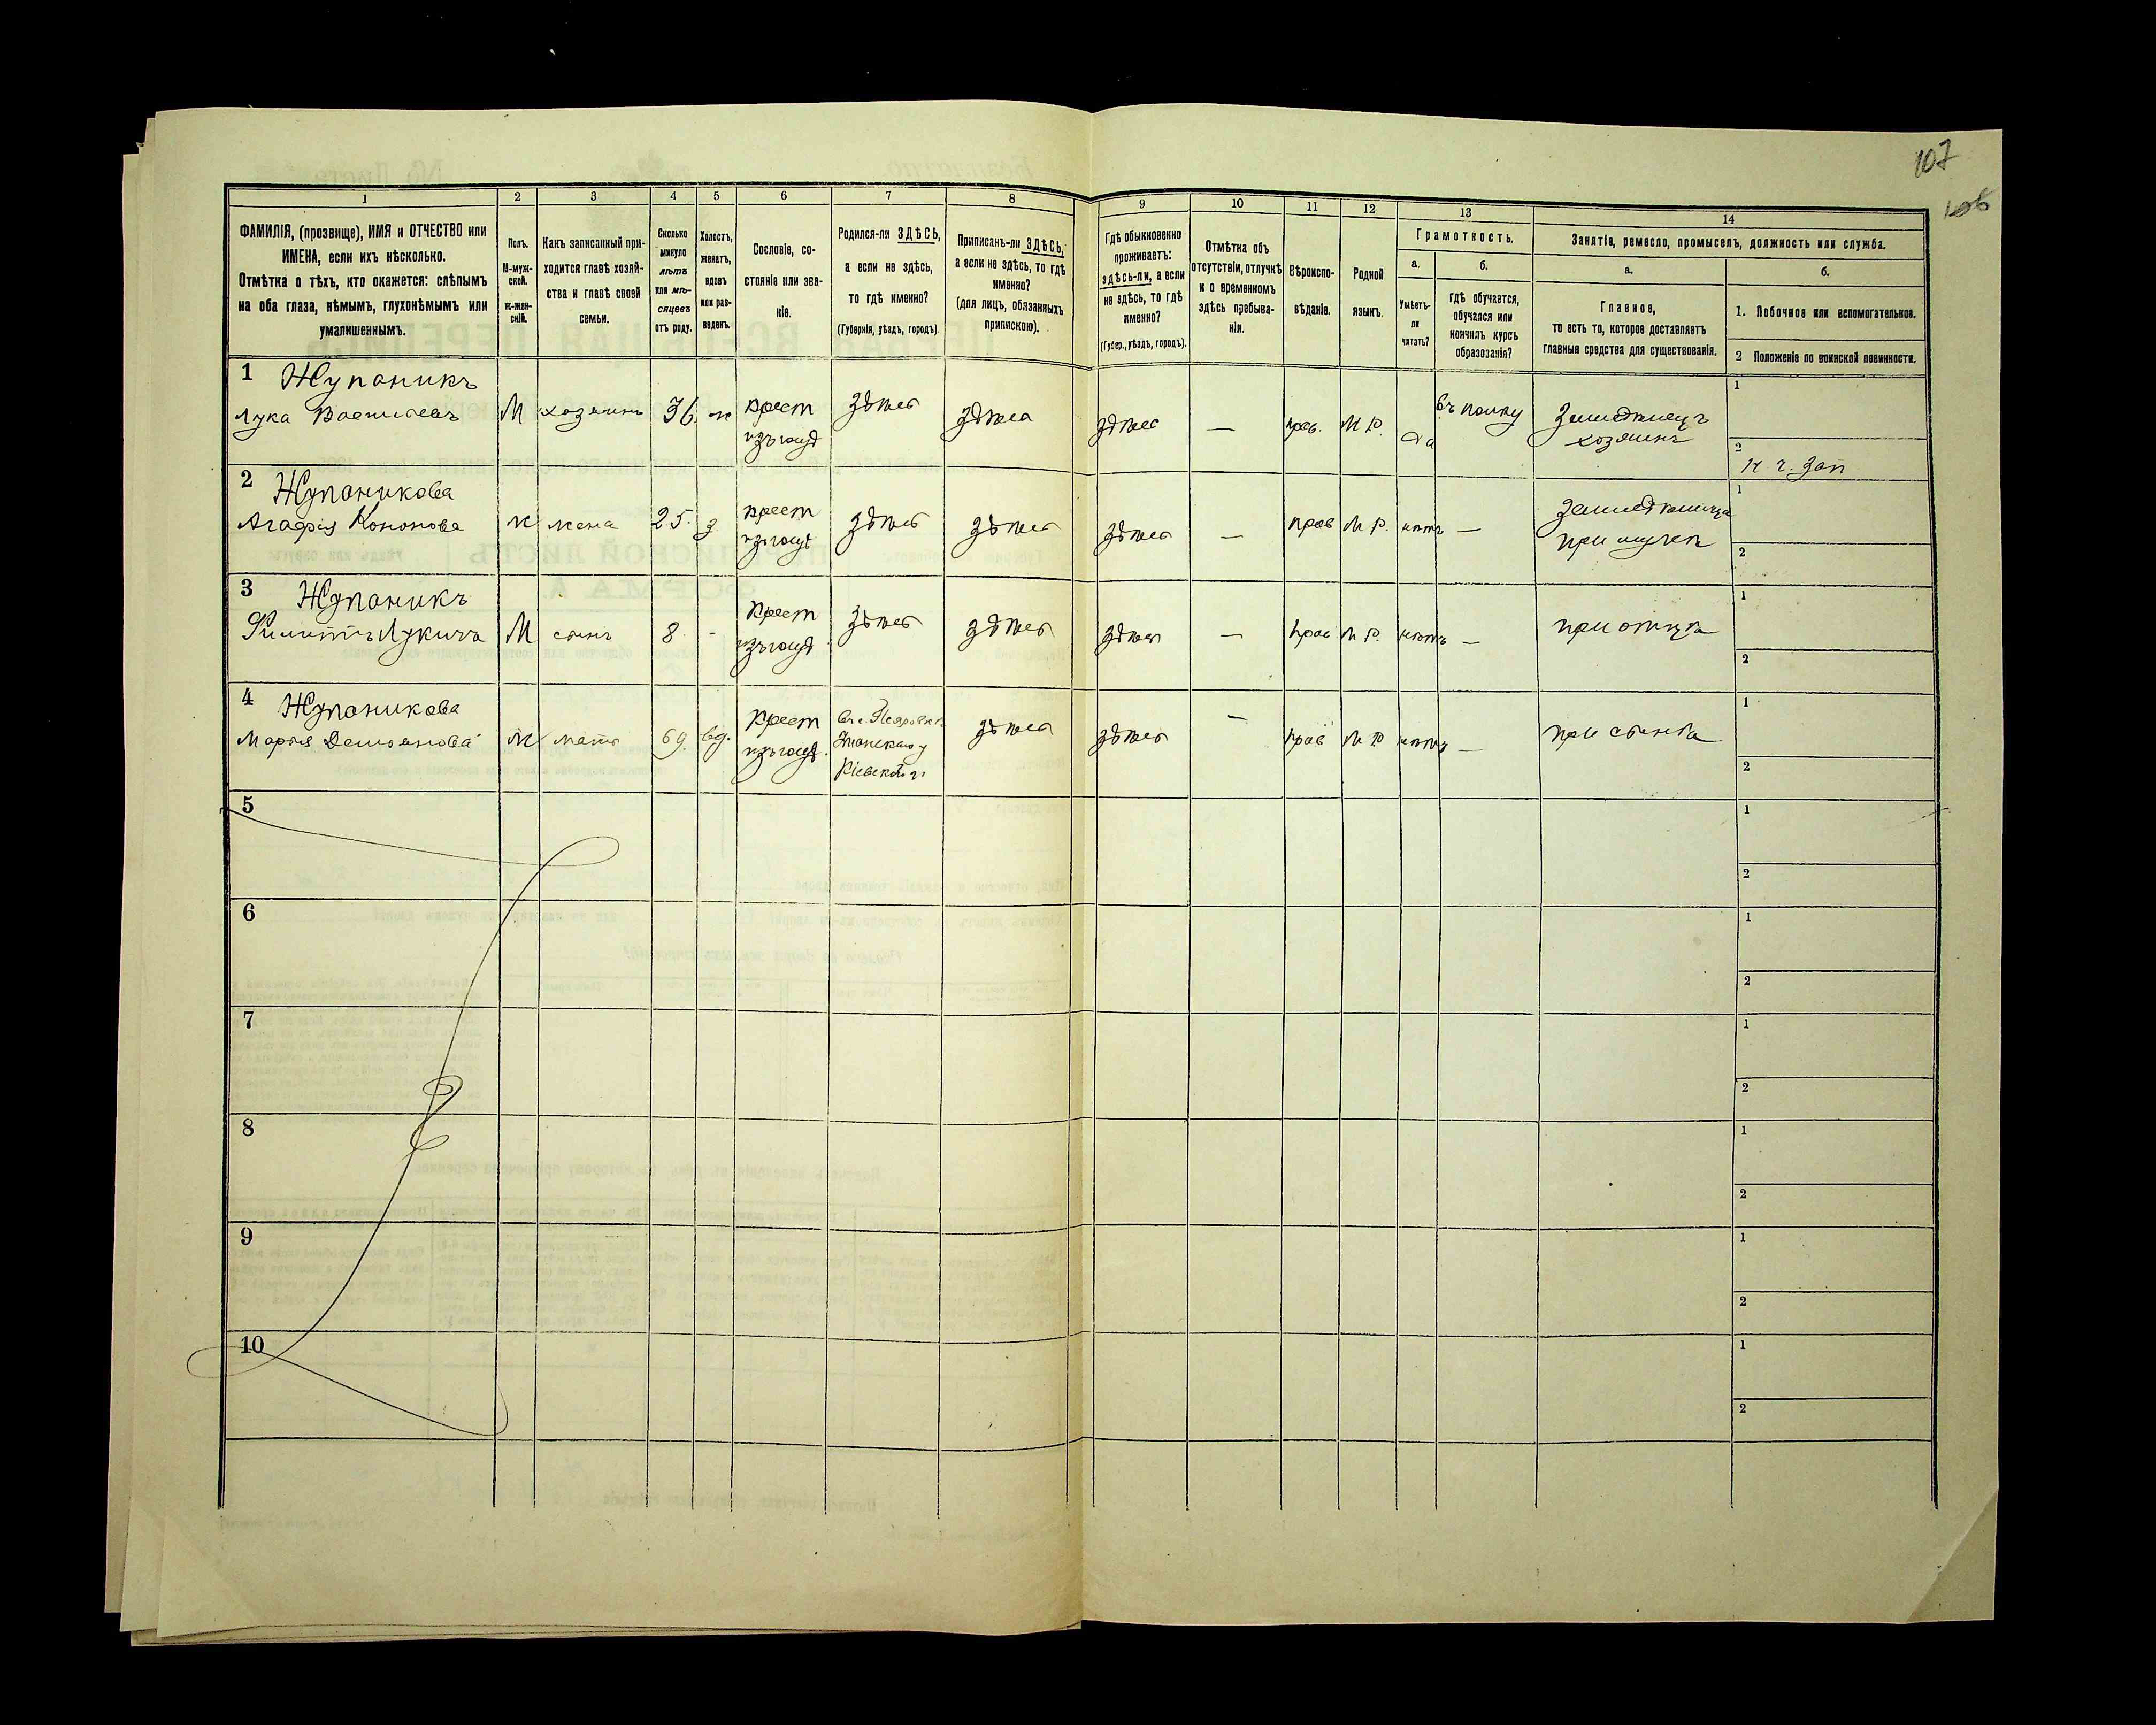 107
106
1 2 3 4 5 6 7 8 9 10 11 12 13 14
ФАМИЛІЯ, (прозвище), ИМЯ и ОТЧЕСТВО или
ИМЕНА, если ихъ нѣсколько.
Отмѣтка о тѣхъ, кто окажется: слѣпымъ
на оба глаза, нѣмымъ, глухонѣмымъ или
умалишеннымъ.
Полъ.
М-муж-
ской.
ж-жен-
скій.
Какъ записанный при-
ходится главѣ хозяй-
ства и главѣ своей
семьи.
Сколько
минуло
лѣтъ
или мѣ-
сяцевъ
отъ роду.
Холостъ,
женатъ,
вдовъ
или раз-
веденъ.
Сословіе, со-
стояніе или зва-
ніе.
Родился-ли ЗДѢСЬ,
а если не здѣсь,
то гдѣ именно?
(Губернія, уѣздъ, городъ).
Приписанъ-ли ЗДѢСЬ,
а если не здѣсь, то гдѣ
именно?
(для лицъ, обязанныхъ
припискою).
Гдѣ обыкновенно
проживаетъ:
здѣсь-ли, а если
не здѣсь, то гдѣ
именно?
(Губер., уѣздъ, городъ).
Отмѣтка объ
отсутствіи, отлучкѣ
и о временномъ
здѣсь пребыва-
ніи.
Вѣроиспо-
вѣданіе.
Родной
языкъ.
Грамотность.
а.
Умѣетъ-
ли
читать?
б.
гдѣ обучается,
обучался или
кончилъ курсъ
образованія?
Занятіе, ремесло, промыселъ, должность или служба.
а.
Главное,
то есть то, которое доставляетъ
главныя средства для существованія.
б.
1. Побочное или вспомогательное.
2 Положеніе по воинской повинности.
1 Жупаникъ
Лука Васильевъ М хозяинъ 36 ж крест здѣсь здѣсь здѣсь — прав. М Р. да въ полку Земледѣлецъ хозяинъ
1
2
н ч. зап
2 Жупаникова
Агафія Кононова ж жена 25. з крест здѣсь здѣсь здѣсь — прав М Р. нѣтъ —
при мужѣ
1
2
3 Жупаникъ
Филиппъ Лукичъ М сынъ 8 - крест здѣсь здѣсь здѣсь — прав М Р. нѣтъ — при отцѣ
1
2
4 Жупаникова
Марія Демьянова ж мать 69. вд. крест
Уманскаго у
Кіевской г.
здѣсь здѣсь — прав М Р нѣтъ — при сынѣ
1
2
5
1
2
6
1
2
7
1
2
8
1
2
9
1
2
10
1
2